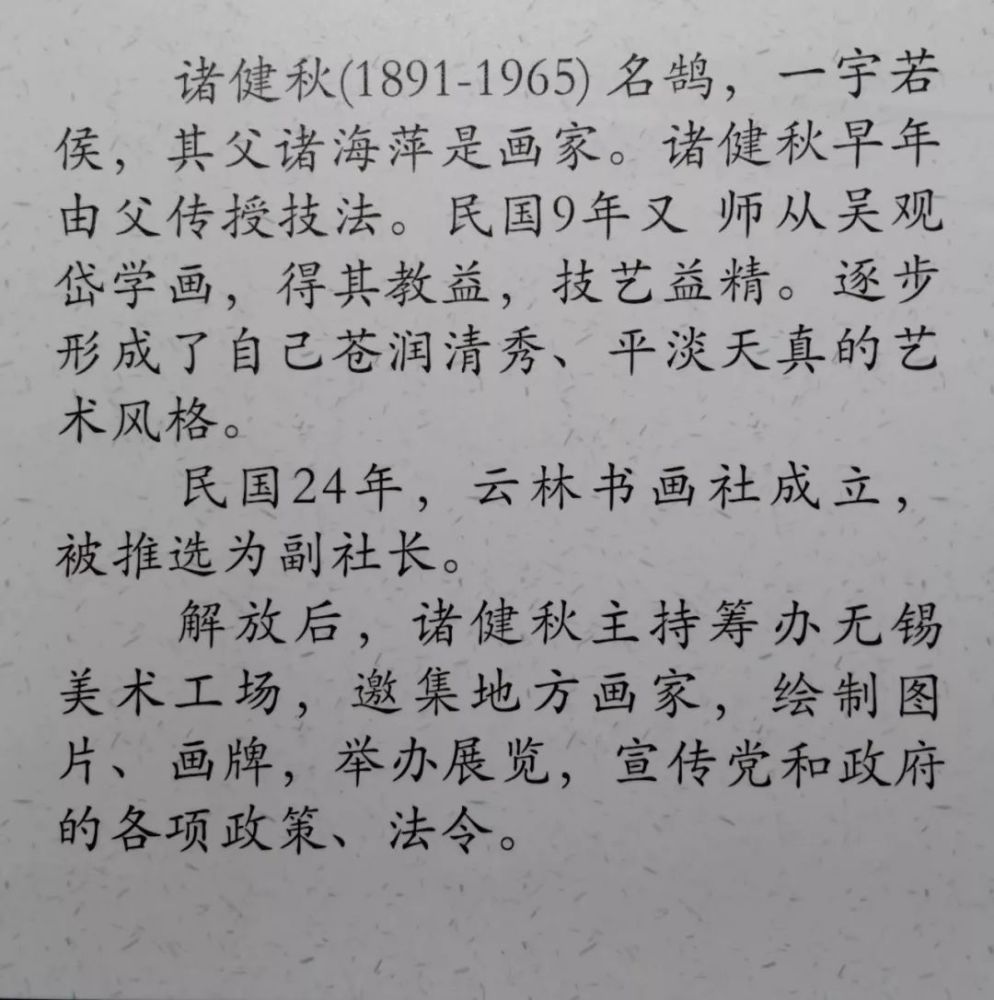 诸健秋(1891-1965) 名鹄，一宇若
侯，其父诸海萍是画家。诸健秋早年
由父传授技法。民国9年又 师从吴观
岱学画，得其教益，技艺益精。逐步
形成了自己苍润清秀、平淡天真的艺
术风格。
民国24年，云林书画社成立，
被推选为副社长。
解放后，诸健秋主持筹办无锡
美术工场，邀集地方画家，绘制图
片、画牌，举办展览，宣传党和政府
的各项政策、法令。